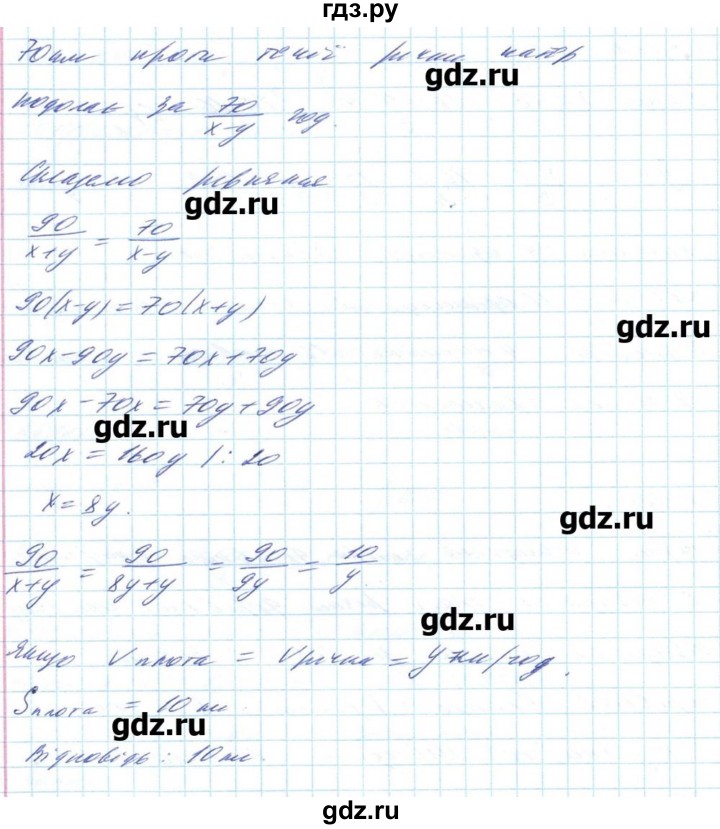 гдз.ру
70 км проти течії річки катер
gdz.ru
подолає за 70/(x-y) год.
Складемо рівняння
gdz.ru
90/(x+y) = 70/(x-y)
90(x-y)=70(x+y)
gdz.ru
90x-90y=70x+70y
90x-70x=70y+90y
gdz.ru
20x=160y /:20
x=8y.
gdz.ru
90/(x+y) = 90/(8y+y) = 90/9y = 10/y.
gdz.ru
Якщо Vплота = Vрічки = y км/год.
Sплота = 10 км.
gdz.ru
Відповідь: 10 км.
gdz.ru